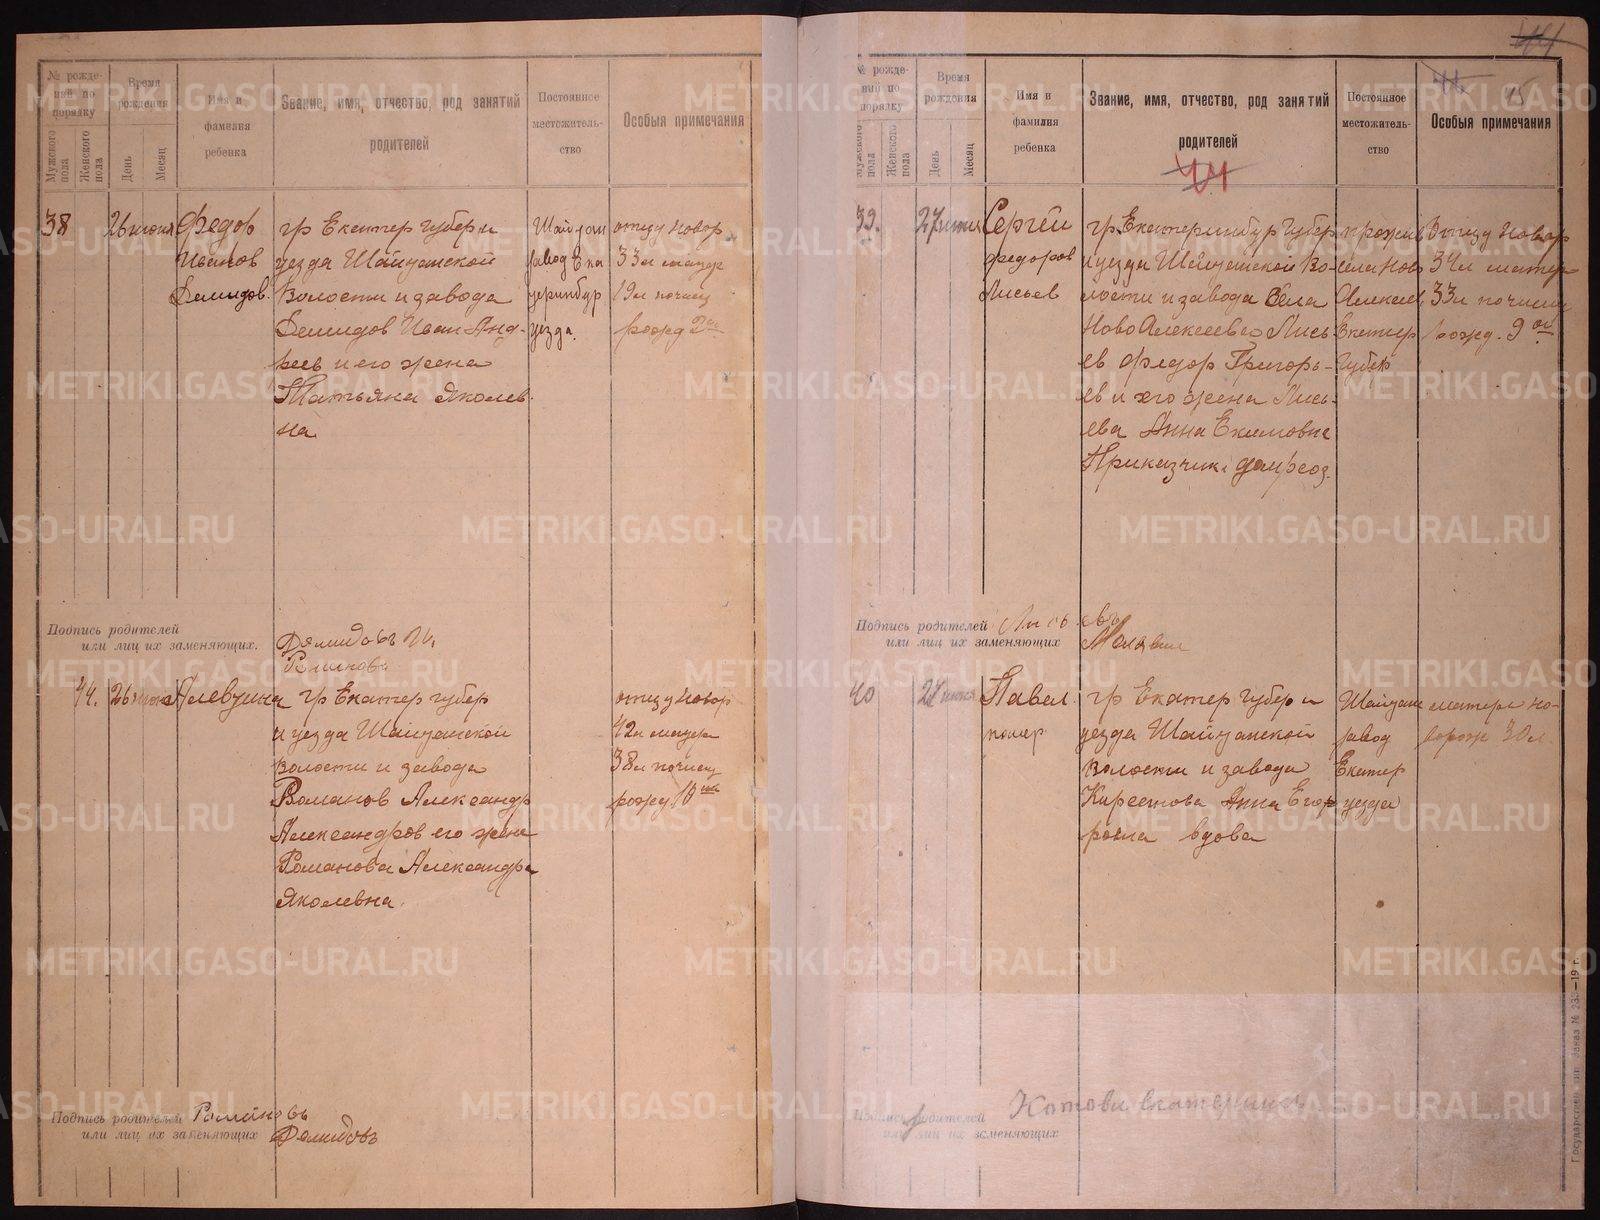 № рожде-
ний по
порядку
Мужского
пола
Женского
пола
Время
рождения
День
Месяц
Имя и
фамилия
ребенка
Звание, имя, отчество, род занятий
родителей
Постоянное
местожитель-
ство
Особыя примечания
38
26 июня
Федор
Иванов
Демидов.
гр Екатер губер и
уезда Шайтанской
Волости и завода
Демидов Иван Анд-
реев и его жена
Татьяна Яколев-
на
Шайтан
завод Ека
теринбур
уезда.
отцу новор
33л матер
19л по числу
рожд 2ой
Подпись родителей
или лиц их заменяющих.
Демидовъ И.
44.
26 июня
Алевтина
гр Екатер губер
и уезда Шайтанской
волости и завода
Романов Александр
Александров его жена
Романова Александра
Яколевна.
отцу новор
42л матер
38л по числу
рожд. 10
Подпись родителей
или лиц их заменяющих
Романовъ
Демидовъ
44
44
15
№ рожде-
ний по
порядку
Мужского
пола
Женского
пола
Время
рождения
День
Месяц
Имя и
фамилия
ребенка
Звание, имя, отчество, род занятий
родителей
44
Постоянное
местожитель-
ство
Особыя примечания
39.
27 июня
Сергей
Федоров
Лисьев
гр. Екатеринбур Губер
и уезда Шайтанской Во-
лости и завода Села
Ново Алексеевско Лись-
ев Федор Григорь-
ев и его жена Лись-
ева Анна Екимовна
Приказчик
прожив
села Ново
Алексеев
Екатер
Губер
Отцу Новор
34л матер
33л по числу
рожд. 9ой
Подпись родителей
или лиц их заменяющих
Лисьевъ
40
Павел
помер
гр Екатер губер и
уезда Шайтанской
волости и завода
Анна Егор
вдова
Шайтан
завод
Екатер
уезда
матери но-
ворож 30л.
Подпись родителей
или лиц их заменяющих
Котова Екатерина
METRIKI.GASO-URAL.RU